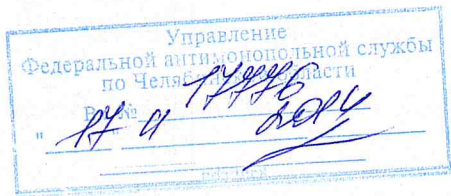 Управление
Федеральной антимонопольной службы
по Челябинской области
№ 17776
" 17 " 11 2014